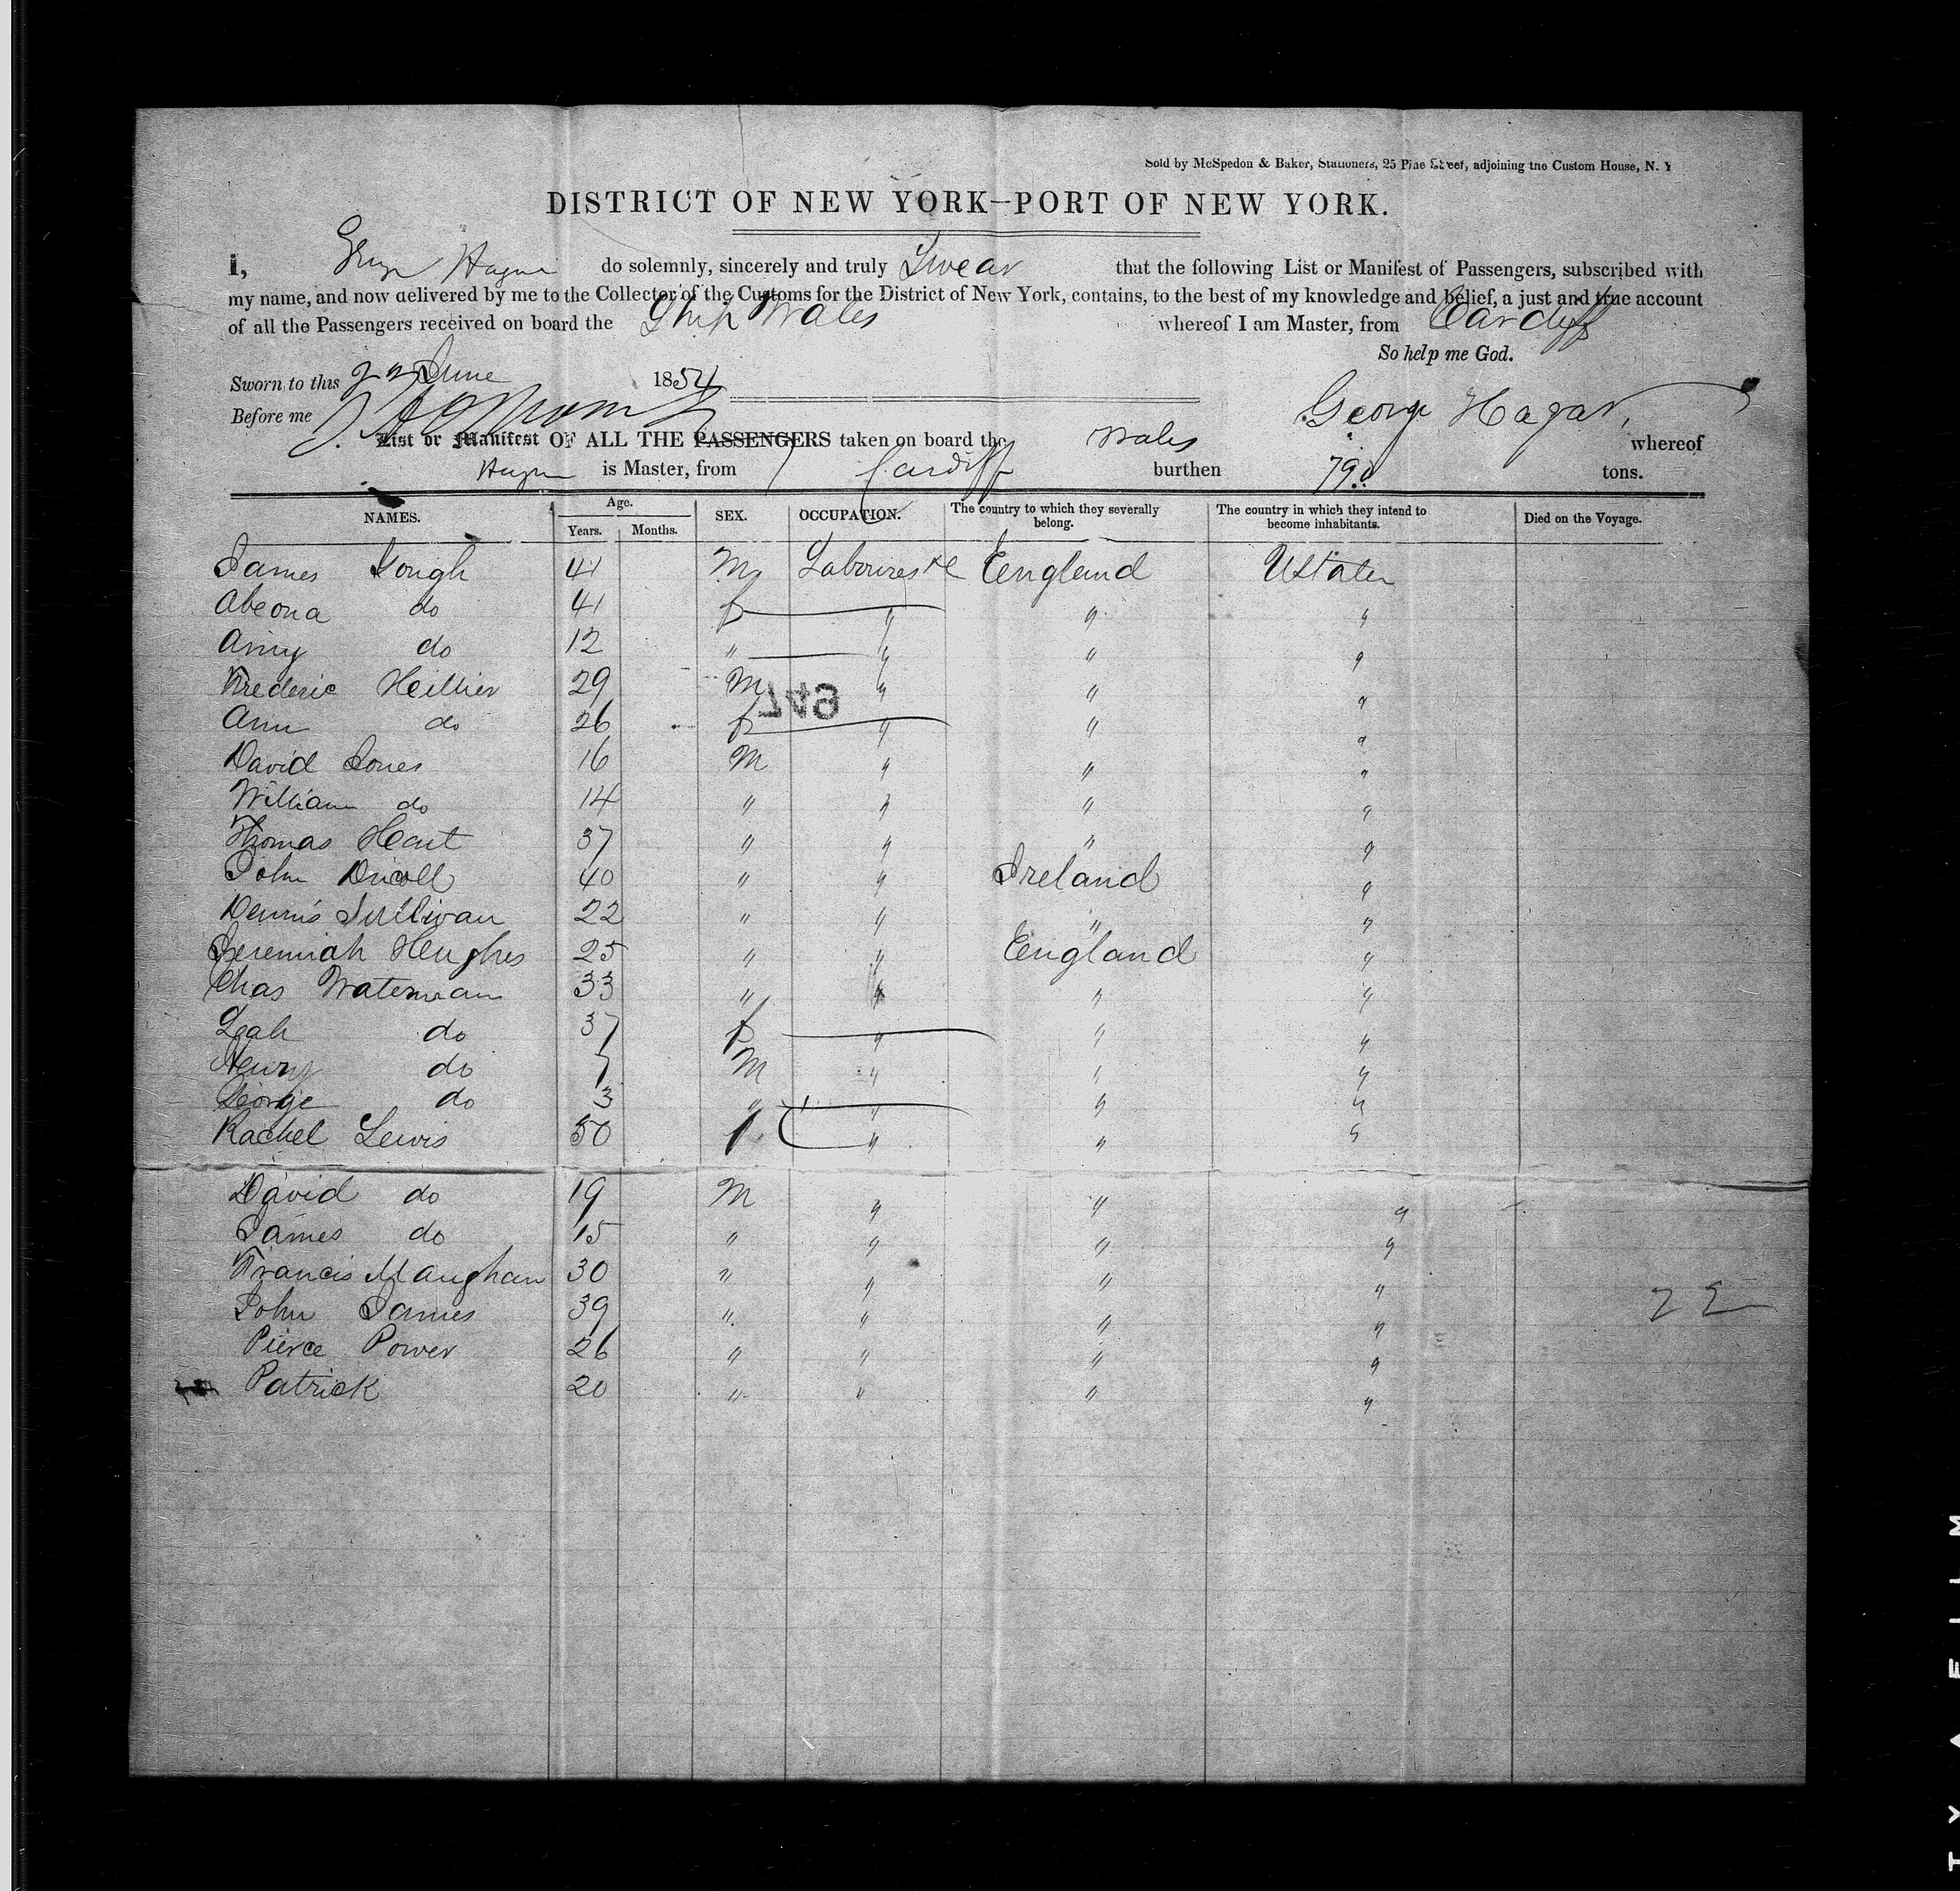 Sold by McSpedon & Baker, Stationers, 25 Pine Street, adjoining the Custom House, N. Y
DISTRICT OF NEW YORK—PORT OF NEW YORK.
I, George Hagar do solemnly, sincerely and truly Swear that the following List or Manifest of Passengers, subscribed with
my name, and now delivered by me to the Collector of the Customs for the District of New York, contains, to the best of my knowledge and belief, a just and true account
of all the Passengers received on board the Ship Wales whereof I am Master, from Cardiff
So help me God.
Sworn to this 22 June 1854
Before me
George Hagar
List or Manifest OF ALL THE PASSENGERS taken on board the Wales whereof
Hagar is Master, from Cardiff burthen 790 tons.
NAMES. Age. Years. Months. SEX. OCCUPATION. The country to which they severally belong. The country in which they intend to become inhabitants. Died on the Voyage.
James Gough 41 M Laboures &c England UStates
Abeona do 41 f " " "
Amy do 12 " " " "
Frederic Hellier 29 M " " "
649
Ann do 26 f " " "
David Jones 16 M " " "
William do 14 " " " "
Thomas Hart 37 " " " "
John Dricoll 40 " " Ireland "
Dennis Sullivan 22 " " " "
Jeremiah Hughes 25 " " England "
Chas Waterman 33 " " " "
Leah do 37 f " " "
Henry do 7 M " " "
George do 3 " " " "
Rachel Lewis 50 f " " "
David do 19 M " " "
James do 15 " " " "
Francis Maughan 30 " " " "
John James 39 " " " "
22
Pierce Power 26 " " " "
Patrick 20 " " " "